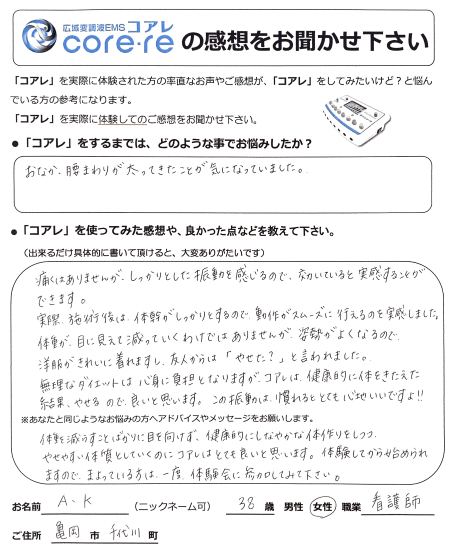 広域変調波EMS コアレ
core・re の感想をお聞かせ下さい
「コアレ」を実際に体験された方の率直なお声やご感想が、「コアレ」をしてみたいけど？と悩ん
でいる方の参考になります。
「コアレ」を実際に体験してのご感想をお聞かせ下さい。
●「コアレ」をするまでは、どのような事でお悩みしたか？
おなか、腰まわりが太ってきたことが気になっていました。
●「コアレ」を使ってみた感想や、良かった点などを教えて下さい。
（出来るだけ具体的に書いて頂けると、大変ありがたいです）
痛くはありませんが、しっかりとした振動を感じるので、効いていると実感することが
できます。
実際、施術後は、体幹がしっかりとするので、動作がスムーズに行えるのを実感しました。
体重が、目に見えて減っていくわけではありませんが、姿勢がよくなるので、
洋服がきれいに着れますし、友人からは「やせた？」と言われました。
無理なダイエットは心身に負担となりますが、コアレは、健康的に体をきたえた
結果、やせるので、良いと思います。この振動は、慣れるととても心地いいですよ!!
※あなたと同じようなお悩みの方へアドバイスやメッセージをお願いします。
体重を減らすことばかりに目を向けず、健康的にしなやかな体作りをしつつ、
やせやすい体質としていくのにコアレはとても良いと思います。体験してから始められ
ますので、まよっている方は、一度、体験会に参加してみて下さい。
お名前 A.K （ニックネーム可） 38 歳 男性 女性 職業 看護師
ご住所 亀岡 市 千代川 町